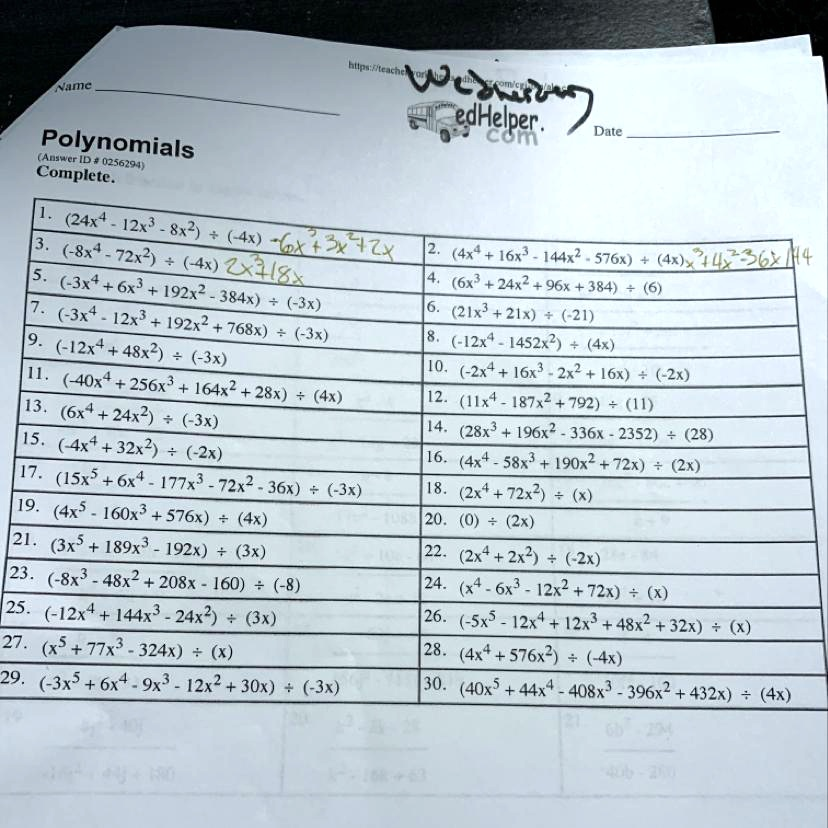 https://teache
Wednesday
Name
edHelper.
com
Date
Polynomials
(Answer ID # 0256294)
Complete.
1. (24x⁴ - 12x³ - 8x²) ÷ (-4x) -6x³+3x²+2x
2. (4x⁴ + 16x³ - 144x² - 576x) ÷ (4x) x³+4x²-36x 144
3. (-8x⁴ - 72x²) ÷ (-4x) 2x³+18x
4. (6x³ + 24x² + 96x + 384) ÷ (6)
5. (-3x⁴ + 6x³ + 192x² - 384x) ÷ (-3x)
6. (21x³ + 21x) ÷ (-21)
7. (-3x⁴ - 12x³ + 192x² + 768x) ÷ (-3x)
8. (-12x⁴ - 1452x²) ÷ (4x)
9. (-12x⁴ + 48x²) ÷ (-3x)
10. (-2x⁴ + 16x³ - 2x² + 16x) ÷ (-2x)
11. (-40x⁴ + 256x³ + 164x² + 28x) ÷ (4x)
12. (11x⁴ - 187x² + 792) ÷ (11)
13. (6x⁴ + 24x²) ÷ (-3x)
14. (28x³ + 196x² - 336x - 2352) ÷ (28)
15. (-4x⁴ + 32x²) ÷ (-2x)
16. (4x⁴ - 58x³ + 190x² + 72x) ÷ (2x)
17. (15x⁵ + 6x⁴ - 177x³ - 72x² - 36x) ÷ (-3x)
18. (2x⁴ + 72x²) ÷ (x)
19. (4x⁵ - 160x³ + 576x) ÷ (4x)
20. (0) ÷ (2x)
21. (3x⁵ + 189x³ - 192x) ÷ (3x)
22. (2x⁴ + 2x²) ÷ (-2x)
23. (-8x³ - 48x² + 208x - 160) ÷ (-8)
24. (x⁴ - 6x³ - 12x² + 72x) ÷ (x)
25. (-12x⁴ + 144x³ - 24x²) ÷ (3x)
26. (-5x⁵ - 12x⁴ + 12x³ + 48x² + 32x) ÷ (x)
27. (x⁵ + 77x³ - 324x) ÷ (x)
28. (4x⁴ + 576x²) ÷ (-4x)
29. (-3x⁵ + 6x⁴ - 9x³ - 12x² + 30x) ÷ (-3x)
30. (40x⁵ + 44x⁴ - 408x³ - 396x² + 432x) ÷ (4x)